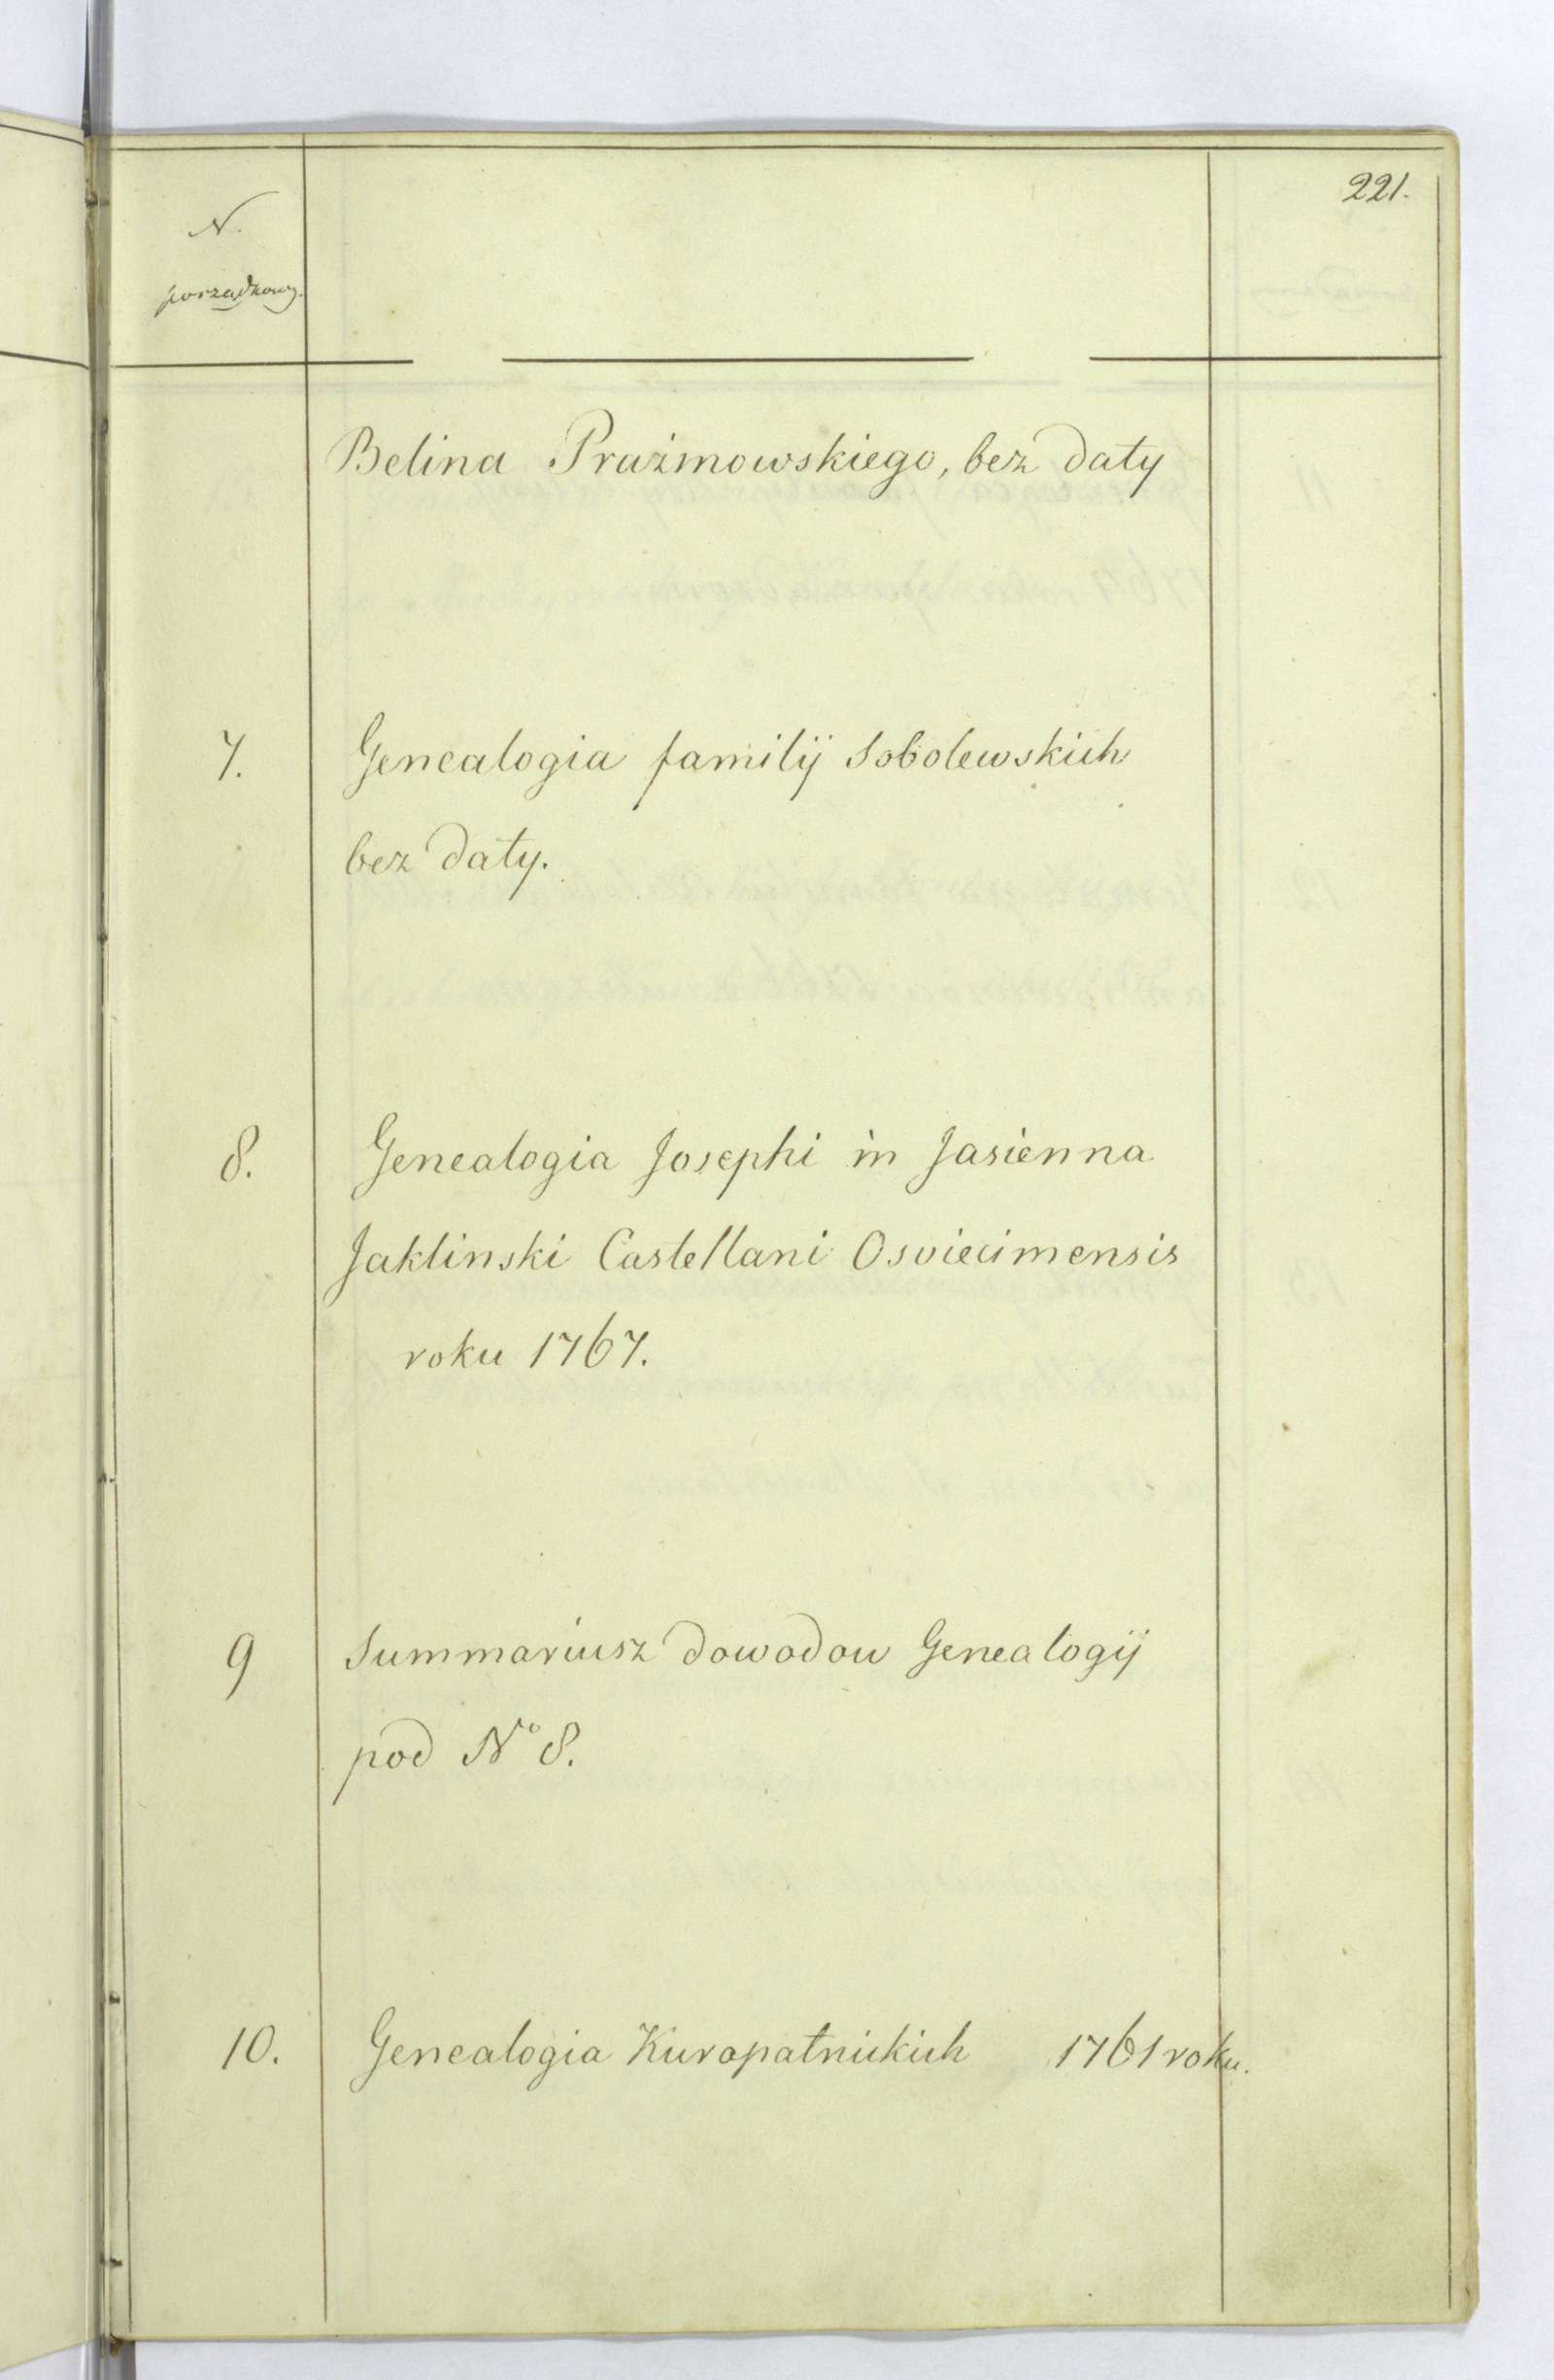 221.
N.
porządkowy.
Belina Prażmowskiego, bez daty
7. Genealogia familij Sobolewskich
bez daty.
8. Genealogia Josephi in Jasienna
Jaklinski Castellani Osviecimensis
roku 1767.
9 Summariusz dowodow Genealogij
pod No 8.
10. Genealogia Kuropatnickich 1761 roku.